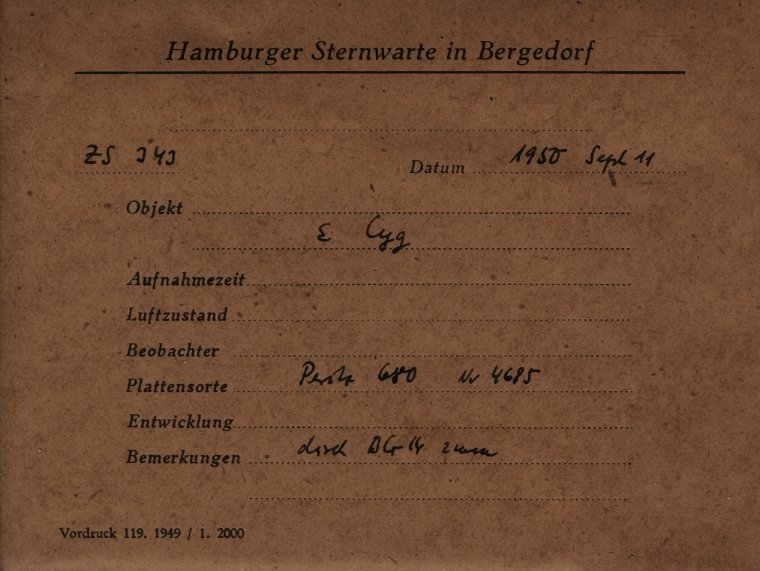 Hamburger Sternwarte in Bergedorf
ZS 343 Datum 1950 Sept 11
Objekt
ε Cyg
Aufnahmezeit
Luftzustand
Beobachter
Plattensorte Perutz 680 Nr 4685
Entwicklung
Bemerkungen durch 2 mm
Vordruck 119. 1949 / 1. 2000